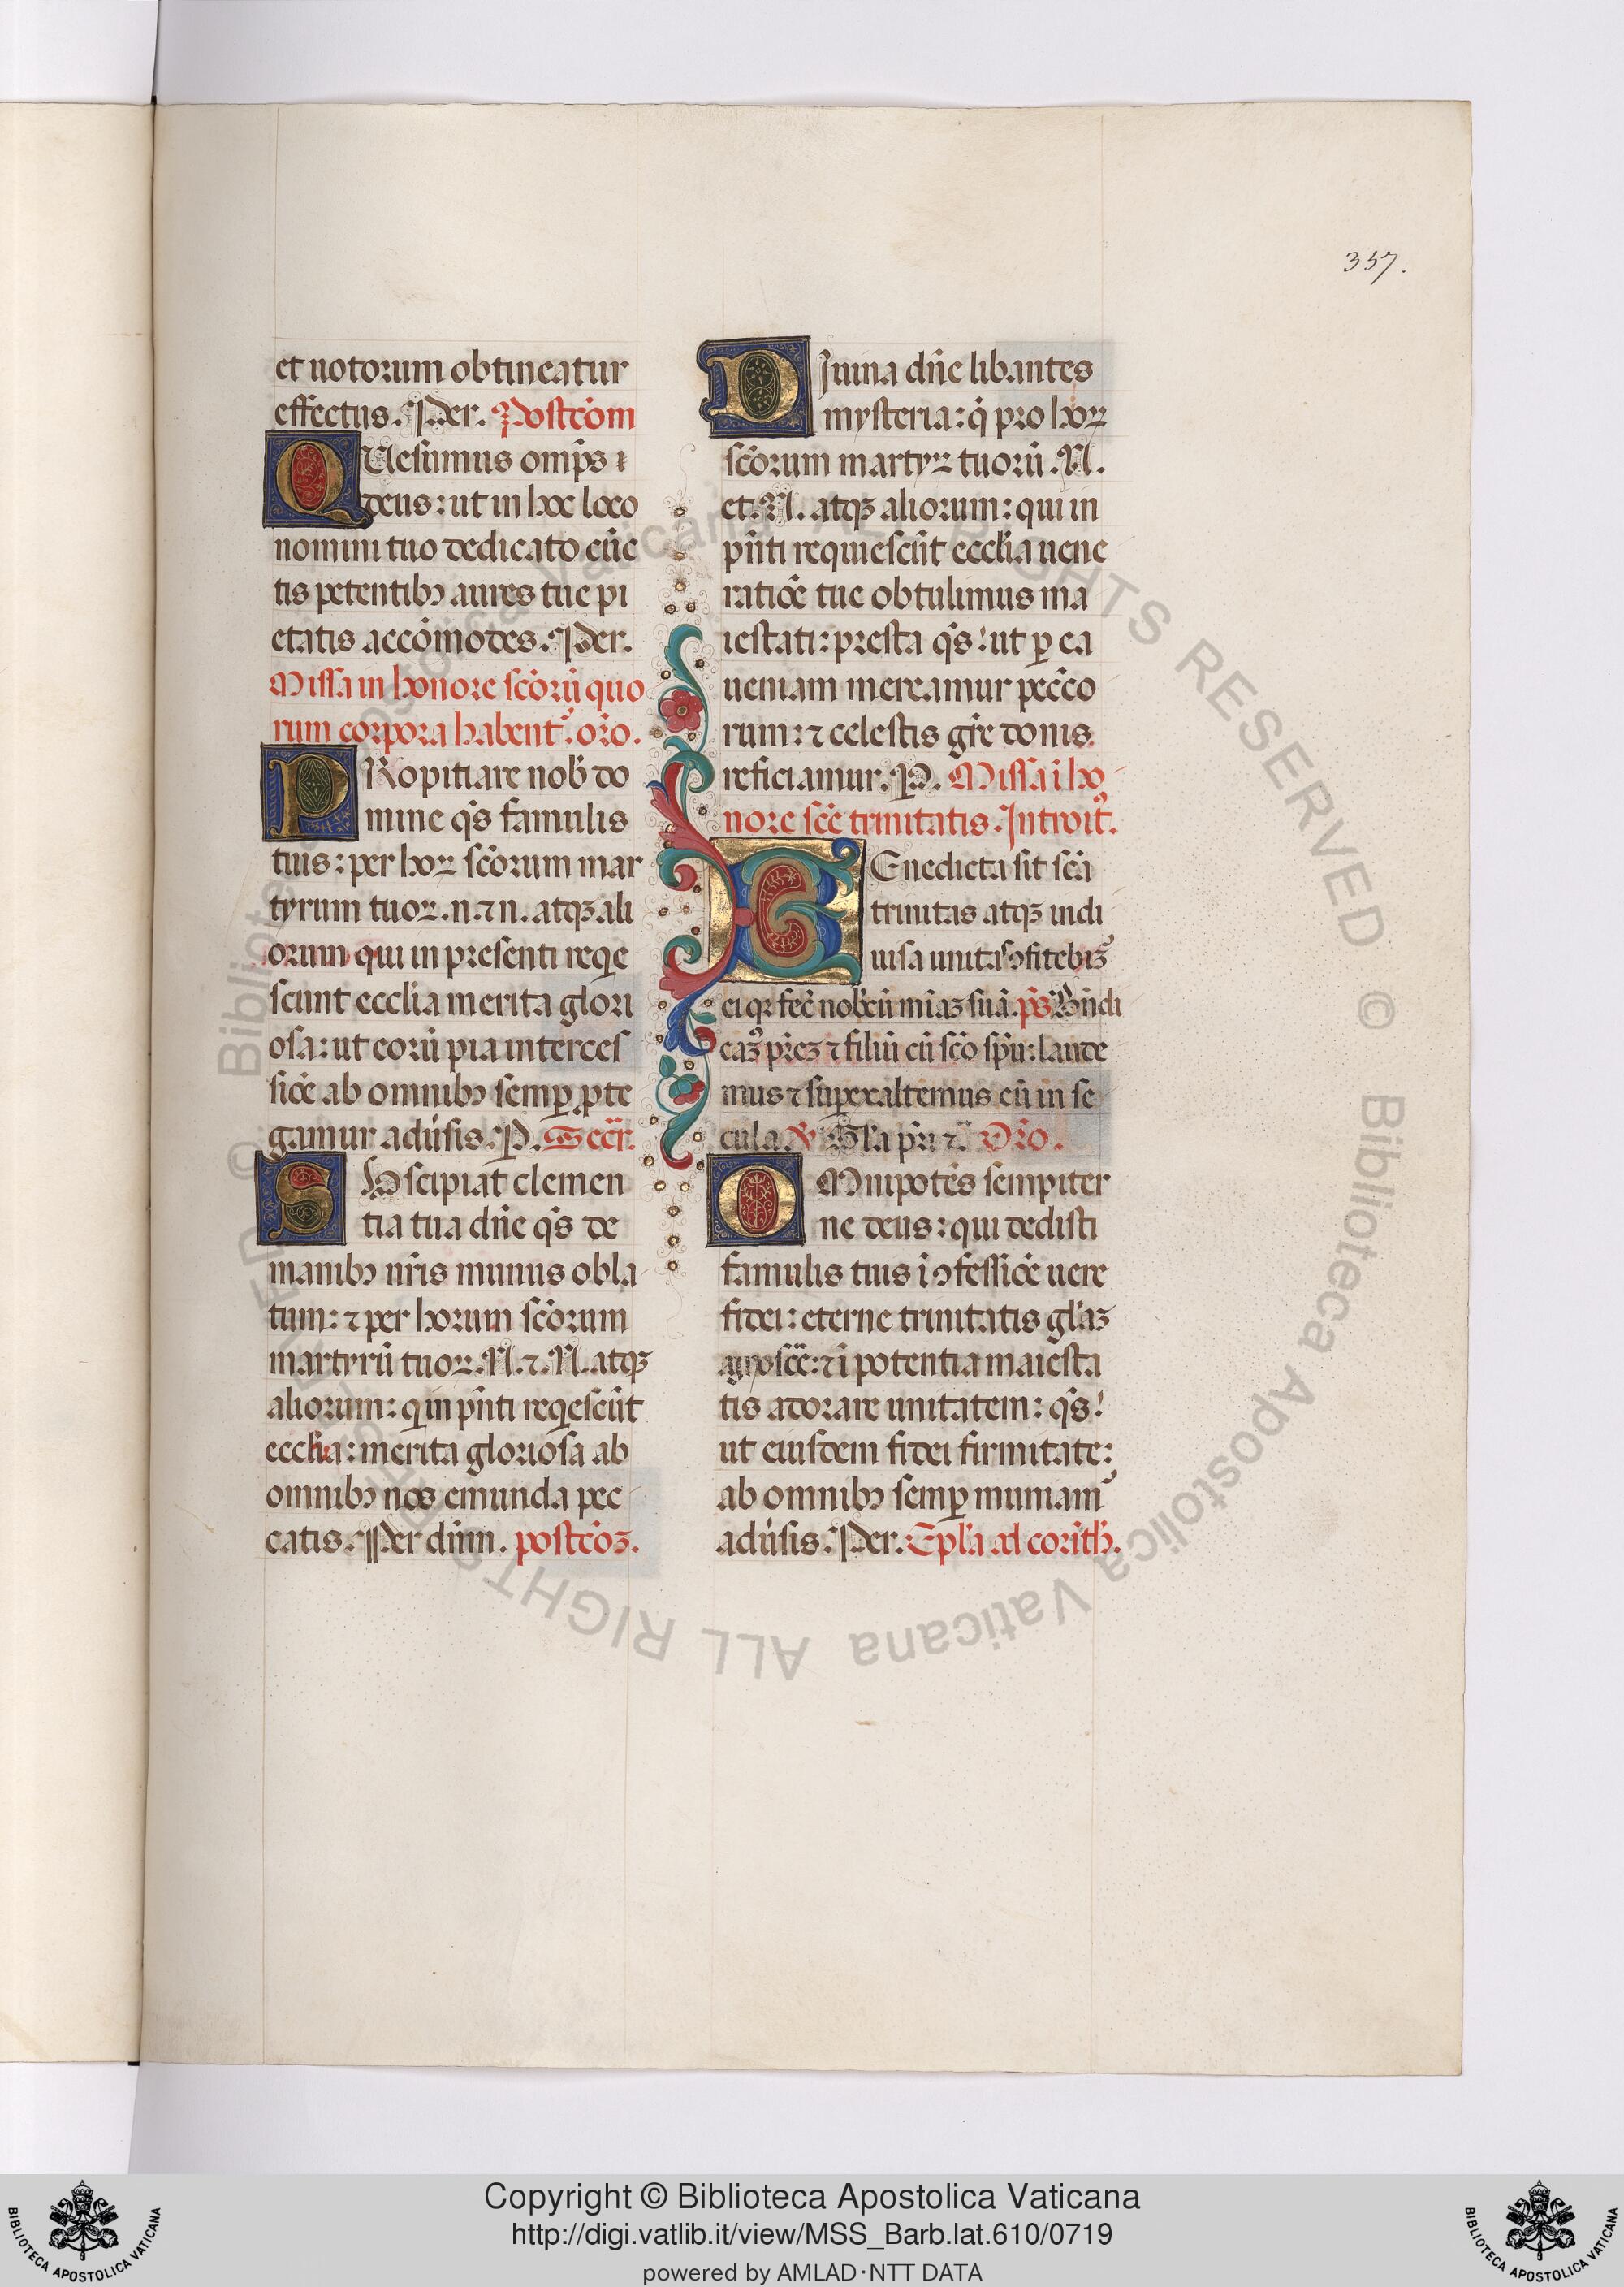 357.
et uotorum obtineatur
effectus. Per. Postcōm
QUesumus omp̄s ⁊
deus: ut in hoc loco
nomini tuo dedicato cūc
tis petentibꝫ aures tue pi
etatis accōmodes. Per.
Missa in honore sc̄orū quo
rum corpora habent᷑. or̄o.
PRopitiare nob̄ do
mine q̄s famulis
tuis: per hoꝝ sc̄orum mar
tyrum tuoꝝ. n. ⁊ n. atqꝫ ali
orum qui in presenti reqͥe
scunt eccl̄ia merita glori
osa: ut eorū pia interces
siōe ab omnibꝫ semꝑ ꝓte
gamur adūsis. P. Secr̄.
SUscipiat clemen
tia tua dn̄e q̄s de
manibꝫ nr̄is munus obla
tum: ⁊ per horum sc̄orum
martyrū tuoꝝ. N. ⁊. N. atqꝫ
aliorum: qͥ in pn̄ti reqͥescūt
eccl̄ia: merita gloriosa ab
omnibꝫ nos emunda pec
catis. Per dn̄m. postcōꝫ.
DIuina dn̄e libantes
mysteria: q̄ pro hoꝝ
sc̄orum martyꝝ tuorū. N.
et. N. atqꝫ aliorum: qui in
pn̄ti requiescūt eccl̄ia uene
ratiōe tue obtulimus ma
iestati: presta q̄s: ut ꝑ ea
ueniam mereamur pecc̄o
rum: ⁊ celestis gr̄e donis
reficiamur. P. Missa ī ho
nore sc̄e trinitatis. Introit᷑.
BEnedicta sit sc̄a
trinitas atqꝫ indi
uisa unitas ꝯfitebimꝰ
ei qꝛ fec̄ nob̄cū mīaꝫ suā. p̄s Bn̄di
camꝰ pr̄eꝫ ⁊ filiū cū sc̄o sp̄u: laude
mus ⁊ suꝑexaltemus eū in se
cula. ℣ Gl̄a pr̄i ⁊c̄ Or̄o.
OMnipotēs sempiter
ne deus: qui dedisti
famulis tuis ī ꝯfessiōe uere
fidei: eterne trinitatis gl̄aꝫ
agnoscē̄: ⁊ ī potentia maiesta
tis adorare unitatem: q̄s:
ut eiusdem fidei firmitate:
ab omnibꝫ semꝑ muniam᷑
adūsis. Per. Epl̄a ad corīth̄.
© Biblioteca Apostolica Vaticana ALL RIGHTS RESERVED
© Biblioteca Apostolica Vaticana ALL RIGHTS RESERVED
BIBLIOTECA APOSTOLICA VATICANA
Copyright © Biblioteca Apostolica Vaticana
http://digi.vatlib.it/view/MSS_Barb.lat.610/0719
powered by AMLAD·NTT DATA
BIBLIOTECA APOSTOLICA VATICANA